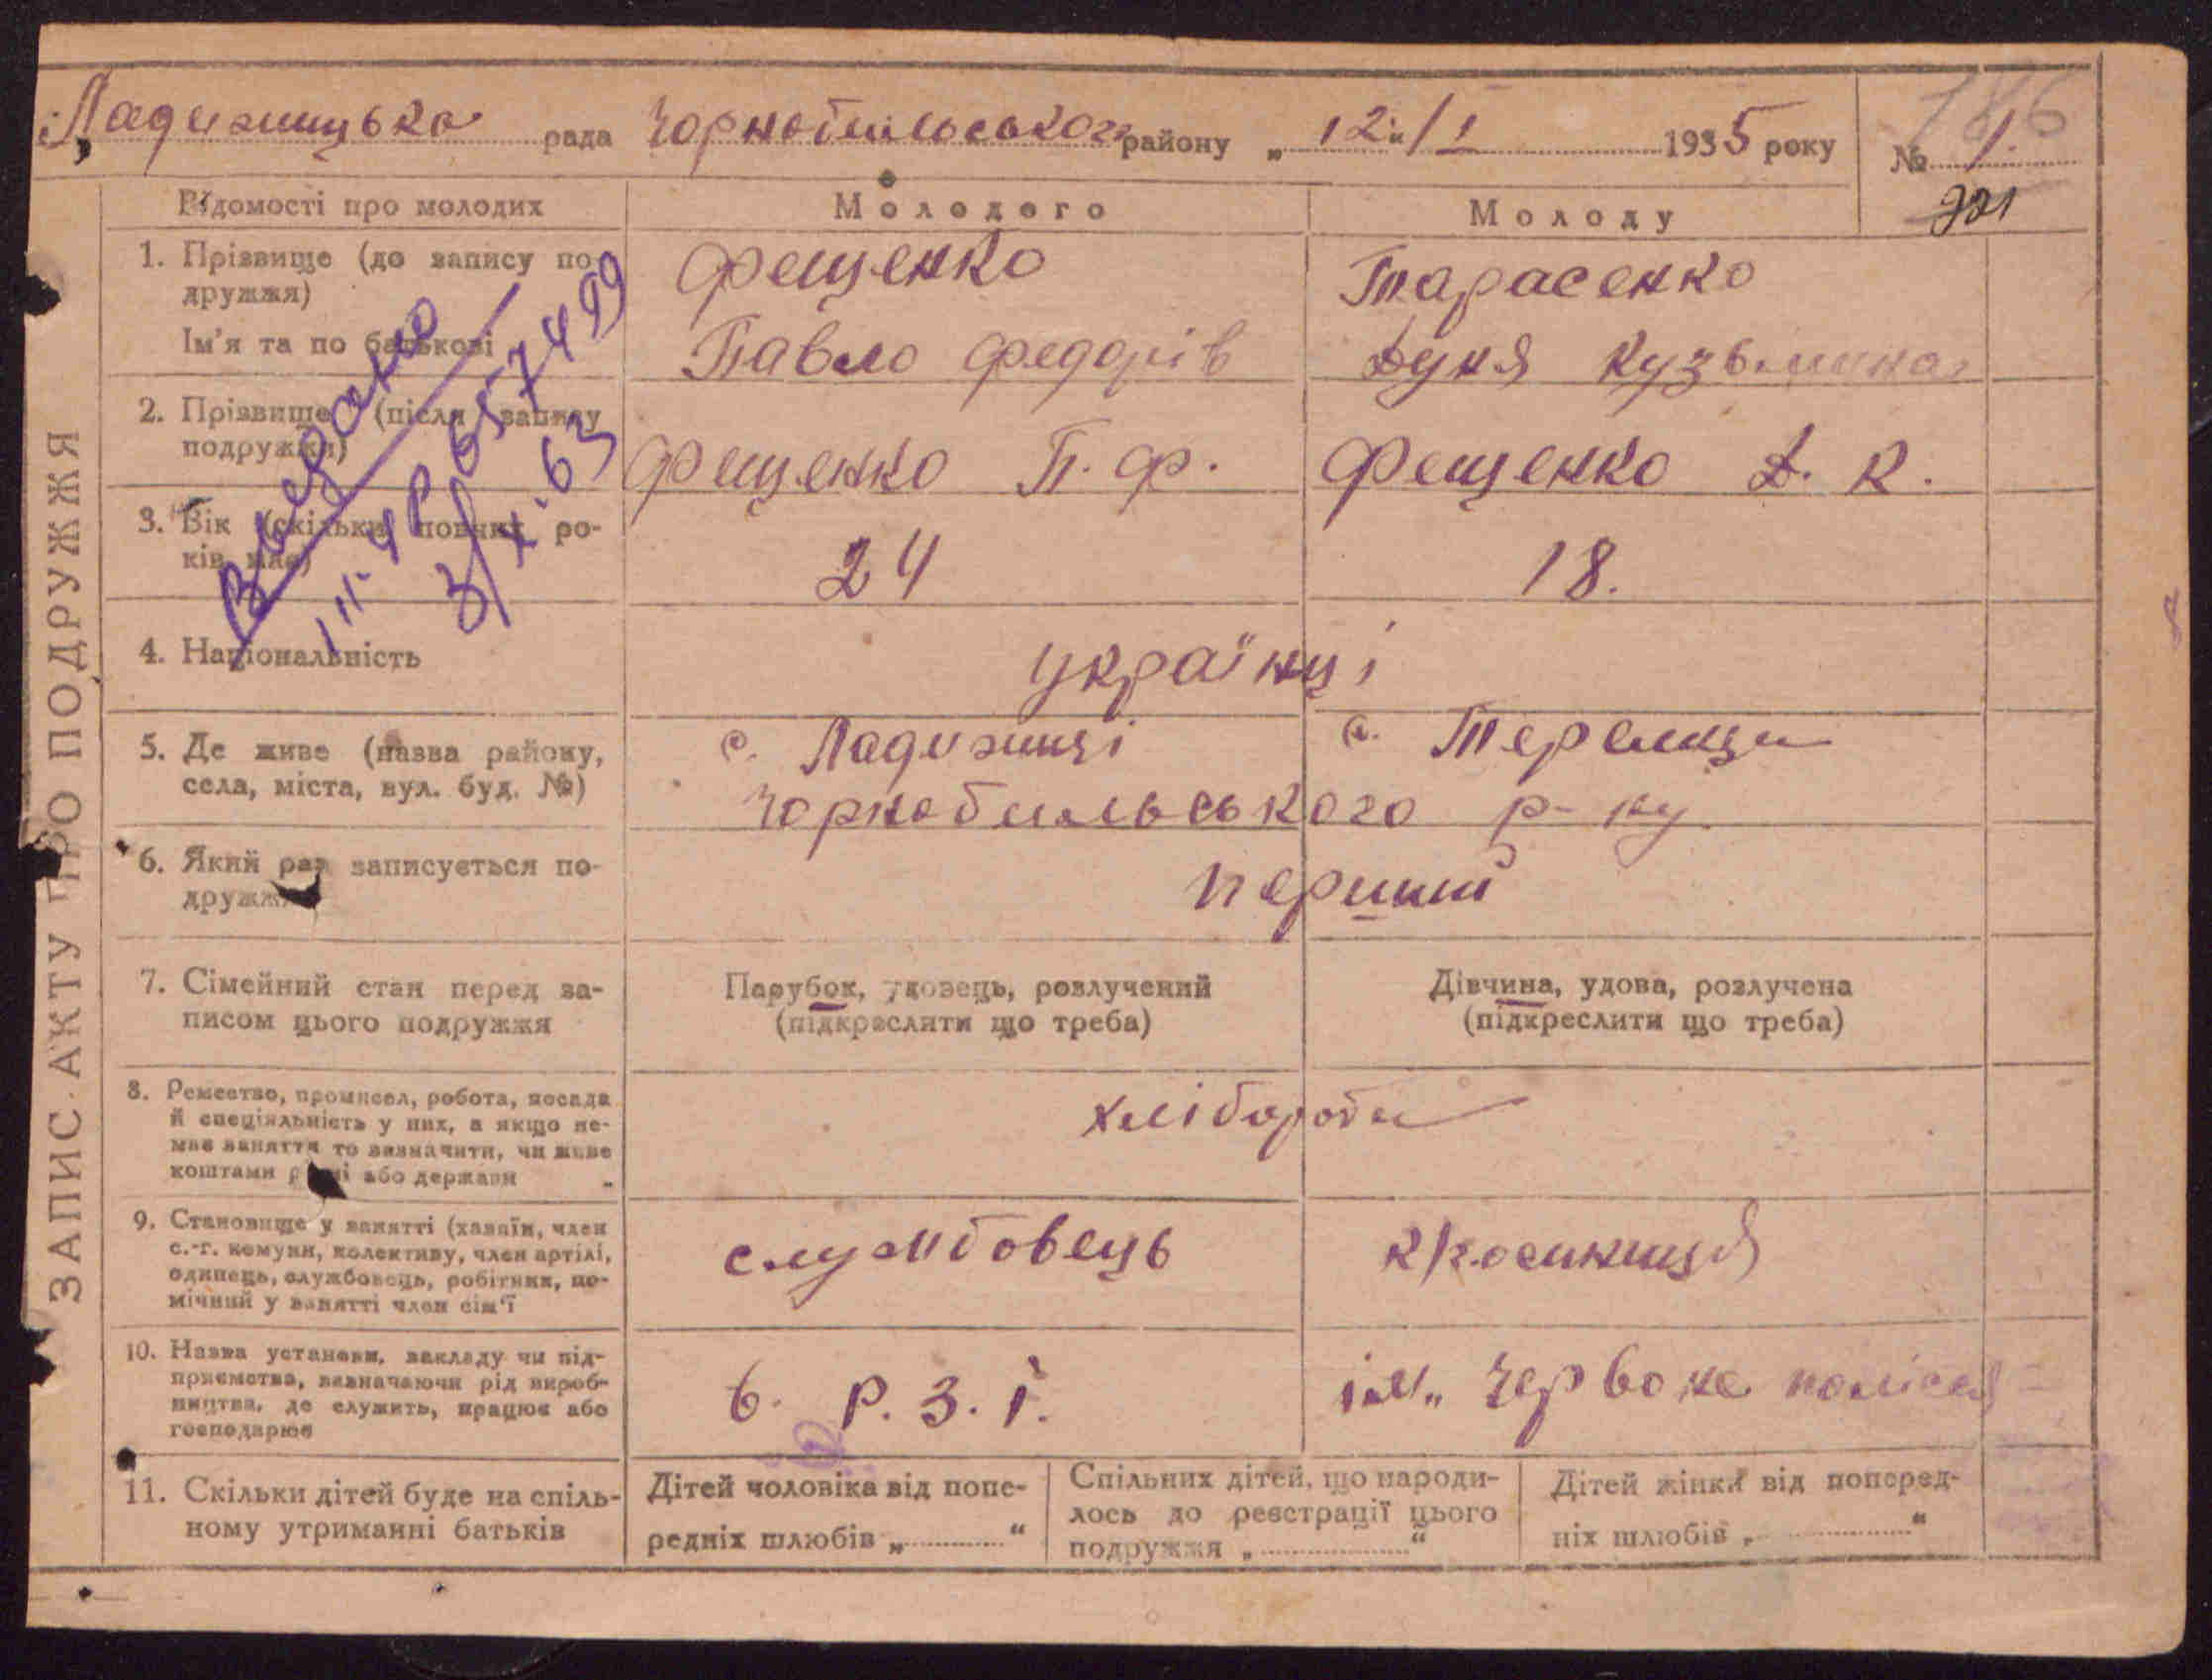 Ладижицька рада Чорнобильського району „ 12 " / I 1935 року № 1.
786
921
ЗАПИС АКТУ ПРО ПОДРУЖЖЯ
Відомості про молодих
Молодого
Молоду
1. Прізвище (до запису по-
дружжя)
Фещенко
Тарасенко
Ім'я та по батькові
Павло Федорів
Дуня Кузьмина
2. Прізвище (після запису
подружжя)
Фещенко П. Ф.
Фещенко Д. К.
3. Вік (скільки повних ро-
ків має)
24
18.
Видано
III-ЧР 657499
3/X-63
4. Національність
українці
5. Де живе (назва району,
села, міста, вул. буд. №)
с. Ладижичі
с. Теремци
Чорнобильського р-ну.
6. Який раз записується по-
дружжя
перший
7. Сімейний стан перед за-
писом цього подружжя
Парубок, удовець, розлучений
(підкреслити що треба)
Дівчина, удова, розлучена
(підкреслити що треба)
8. Ремество, промисел, робота, посада
й спеціяльність у них, а якщо не-
має заняття то зазначити, чи живе
коштами рідні або держави
хлібороби
9. Становище у занятті (хазяїн, член
с.-г. комуни, колективу, член артілі,
одинець, службовець, робітник, по-
мічний у занятті член сім'ї
службовець
10. Назва установи, закладу чи під-
приємства, зазначаючи рід вироб-
ництва, де служить, працює або
господарює
Р. З. І.
ім. Червоне полісся
11. Скільки дітей буде на спіль-
ному утриманні батьків
Дітей чоловіка від попе-
редніх шлюбів „ “
Спільних дітей, що народи-
лось до реєстрації цього
подружжя „ “
Дітей жінки від поперед-
ніх шлюбів „ “